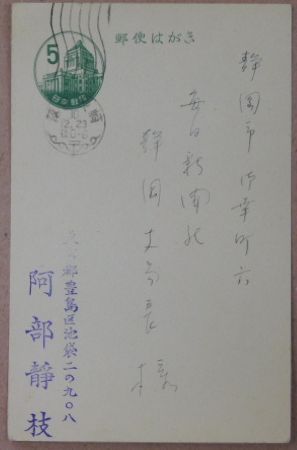 郵便はがき
5
日本郵便
静岡市御幸町六
毎日新聞社
静岡支局長
様
東京都豊島区池袋二の九〇八
阿部静枝